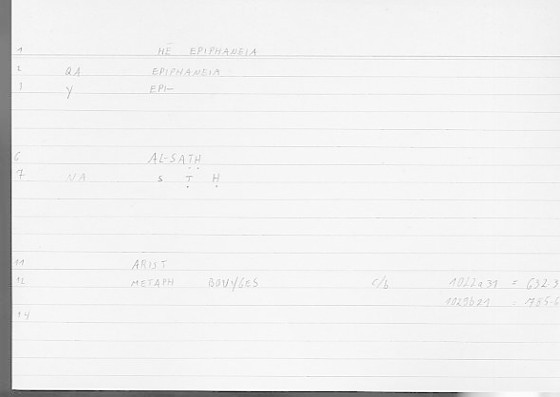 1 HĒ EPIPHANEIA
2 QA EPIPHANEIA
3 Y EPI-
6 AL-SAṬḤ
7 NA S Ṭ Ḥ
11 ARIST
12 METAPH BOUYGES C/b 1022a31 = 632.3
1029b21 = 785.6
14